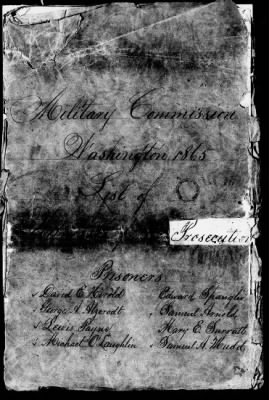 Military Commission
Washington 1865
List of
Prosecution
Prisoners
David E. Herold
George A. Atzerodt
Lewis Payne
Michael O'Laughlin
Edward Spangler
Samuel Arnold
Mary E. Surratt
Samuel A. Mudd